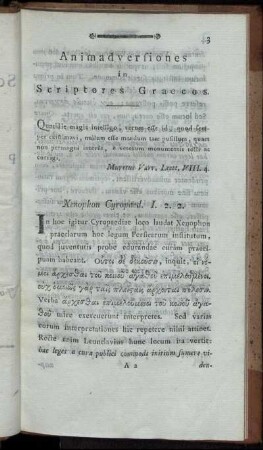 3
Animadversiones
in
Scriptores Graecos.
Quotidie magis intelligo, verum esse id, quod semper existimavi, nullum esse mendum tam pusillum, quam
non permagni intersit, e veterum monumentis tolli ac
corrigi.
Muretus Varr. Lectt. VIII. 4.
Xenophon Cyropaed. I. 2. 2.
In hoc igitur Cyropaediae loco laudat Xenophon
praeclarum hoc legum Persicarum institutum,
quod juventutis probe educandae curam praecipuam
habeant. Οὗτοι δὲ δοκοῦσιν, inquit, οἱ νόμοι
ἄρχεσθαι τοῦ κοινοῦ ἀγαθοῦ ἐπιμελούμενοι,
οὐχ ὅθενπερ ἐν ταῖς πλείσταις ἄρχονται πόλεσι.
Verba ἄρχεσθαι ἐπιμελούμενοι τοῦ κοινοῦ ἀγαθοῦ
mire exercuerunt interpretes. Sed variam
eorum interpretationes hic repetere nihil attinet.
Recte enim Leunclavius hunc locum ita vertit:
hae leges a cura publici commodi initium sumere vi-
A 2
den-